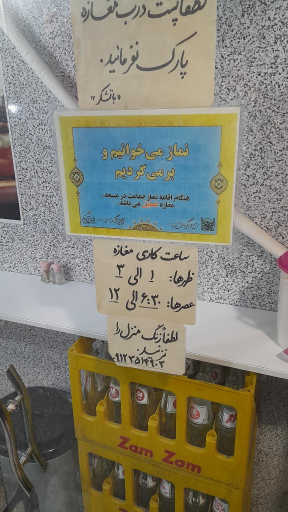 لطفاً پشت درب مغازه
پارک نفرمائید.
"با تشکر"
نماز می‌خوانیم و
بر می‌گردیم
هنگام اقامه نماز جماعت در مسجد
مغازه تعطیل می باشد
ساعت کاری مغازه
ظهرها: ۱ الی ۳
عصرها: ۶:۳۰ الی ۱۲
لطفاً زنگ منزل را
نزنید
Zam Zam
Zam Zam